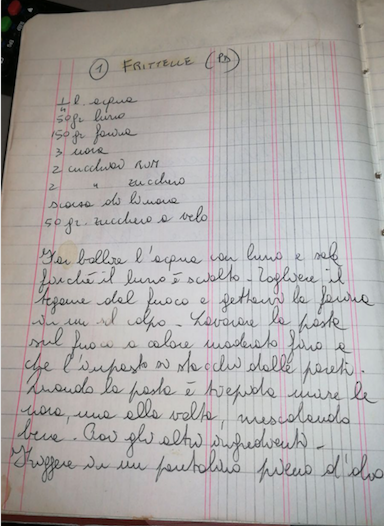 1 FRITTELLE (PD)
1/4 l. acqua
50 gr burro
150 gr farina
3 uova
2 cucchiai RUM
2 " zucchero
scorza di limone
50 gr. zucchero a velo
Far bollire l'acqua con burro e sale
finché il burro è sciolto - Togliere il
tegame dal fuoco e gettarvi la farina
in un sol colpo. Lavorare la pasta
sul fuoco a calore moderato fino a
che l'impasto si stacchi dalle pareti.
Quando la pasta è tiepida unire le
uova, una alla volta, mescolando
bene. Poi gli altri ingredienti -
Friggere in un pentolino pieno d'olio